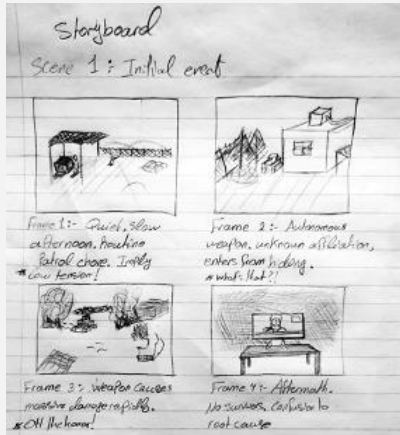 Storyboard
Scene 1: Initial event
Frame 1:- Quiet, slow
afternoon, routine
Patrol chore. Imply
* Low tension!
Frame 2:- Autonomous
weapon, unknown affiliation,
enters from hiding.
* what's that?!
-2
Frame 3:- Weapon causes
massive damage rapidly.
* Oh the horror!
Frame 4:- Aftermath.
No survivors, Confusion to
root cause